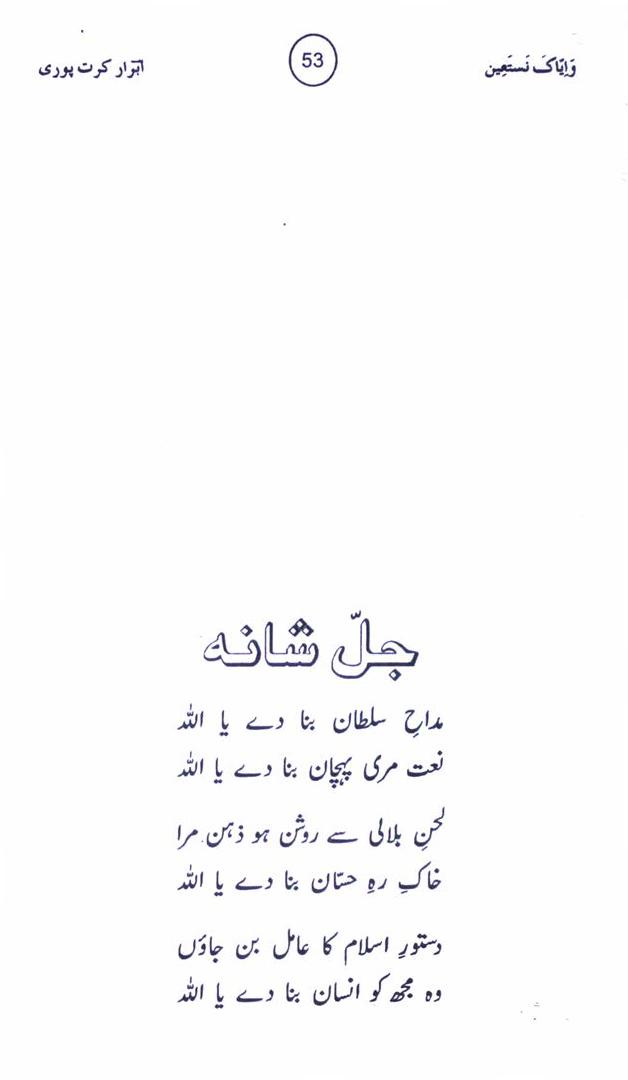 وَاِیّاکَ نَستَعِین
53
ابرار کرت پوری
جلّ شانہ
مداحِ سلطان بنا دے یا اللہ
نعت مری پہچان بنا دے یا اللہ
لحنِ بلالی سے روشن ہو ذہن مرا
خاکِ رہِ حسّان بنا دے یا اللہ
دستورِ اسلام کا عامل بن جاؤں
وہ مجھ کو انسان بنا دے یا اللہ